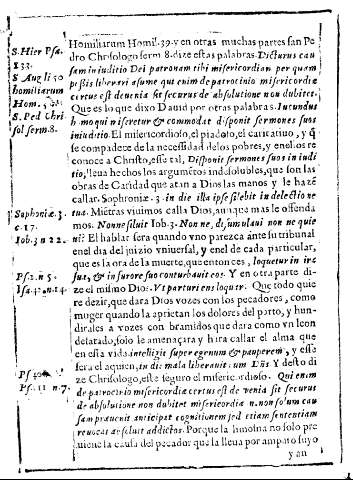 Homiliarum Homil. 39. y en otras muchas partes san Pe
dro Chrisologo serm 8. dize estas palabras. Dicturus cau
sam in iuditio Dei patronam tibi misericordiam per quam
possis liberari asume qui enim de patrocinio misericordiæ
certus est de venia sit securus de absolutione non dubitet.
Que es lo que dixo Dauid por otras palabras. Iucundus
homo qui miseretur & commodat disponit sermones suos
in iuditio. El misericordioso, el piadoso, el caritatiuo, y q̃
se compadece de la necessidad de los pobres, y en ellos re
conoce a Christo, esse tal, Disponit sermones suos in iudi
tio, lleua hechos los argumẽtos indisolubles, que son las
obras de Caridad que atan a Dios las manos y le hazẽ
callar. Sophoniæ. 3. in die illa ipse silebit in delectione
tua. Miẽtras viuimos calla Dios, aunque mas le offenda
mos. Nonne siluit Iob. 3. Non ne, dissimulaui non ne quie
ui? El hablar sera quando vno parezca ante su tribunal
en el dia del juizio vniuersal, y en el de cada particular,
que es la ora de la muerte, que entonces, loquetur in ira
sua, & in furore suo conturbauit eos. Y en otra parte di-
ze el mismo Dios. Vt parturiens loquar. Que todo quie
re dezir, que dara Dios vozes con los pecadores, como
muger quando la aprietan los dolores del parto, y hun-
dirales a vozes con bramidos que dara como vn leon
desatado, solo le amenaçara y hira callar el alma que
en esta vida intelligit super egenum & pauperem, y esse
sera el aquien, in die mala liberauit eum Dñs Y desto di
ze Chrisologo, este seguro el misericordioso. Qui enim
de patrocinio misericordiæ certus est de venia sit securus
de absolutione non dubitet misericordia n. non solum cau
sam præuenit anticipat cognitionem sed etiam sententiam
reuocat absoluit addictos. Porque la limosna no solo pre
uiene la causa del pecador que la lleua por amparo suyo
y an
S. Hier Psa.
133.
S Aug li 50
homiliarum
Hom.
S. Ped Chri
sol serm. 8.
Sophoniæ. 3.
c. 17.
Iob. 3 n 22.
Ps. 2. n 5.
Isa. 42. n. 14.
Ps. 40.
Ps. 11 n. 7.